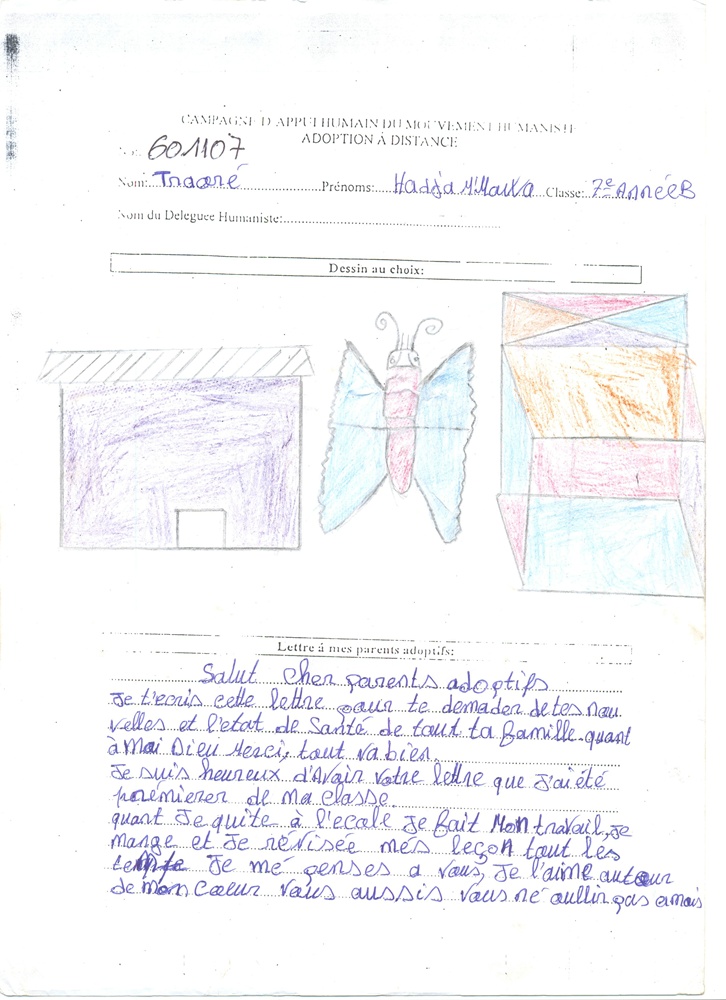 CAMPAGNE D'APPUI HUMAIN DU MOUVEMENT HUMANISTE
ADOPTION À DISTANCE
No: 601107
Nom: Traoré Prénoms: Hadja M'Mawa Classe: 7e AnnéeB
Nom du Deleguee Humaniste:
Dessin au choix:
Lettre á mes parents adoptifs:
Salut cher parents adoptifs
Je t'ecris cette lettre pour te demader de tes nou
velles et l'etat de Santé de tout ta famille. quant
à Moi Dieu Merci, tout va bien.
Je suis heureux d'Avoir votre lettre que J'ai été
premierer de ma classe.
quant Je quite à l'ecole Je fait Mon travail, Je
mange et Je révisée més leçon tout les
Je mé penses a vous, Je l'aime autour
de mon coeur vous aussis vous né oullir pas